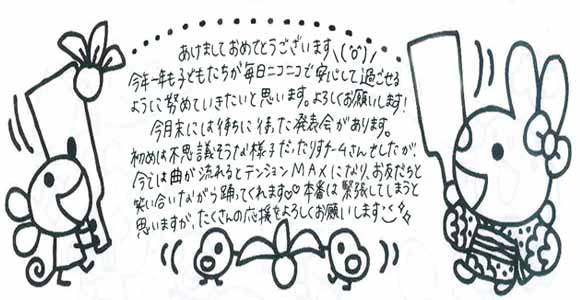 あけましておめでとうございます\(^o^)/
今年一年も子どもたちが毎日ニコニコで安心して過ごせる
ように努めていきたいと思います。よろしくお願いします!
今月末には待ちに待った発表会があります。
初めは不思議そうな様子だったりす千ームさんでしたが、
今では曲が流れるとテンションMAXになり、お友だちと
笑い合いながら踊ってくれます♡♡本番は緊張してしまうと
思いますが、たくさんの応援をよろしくお願いします